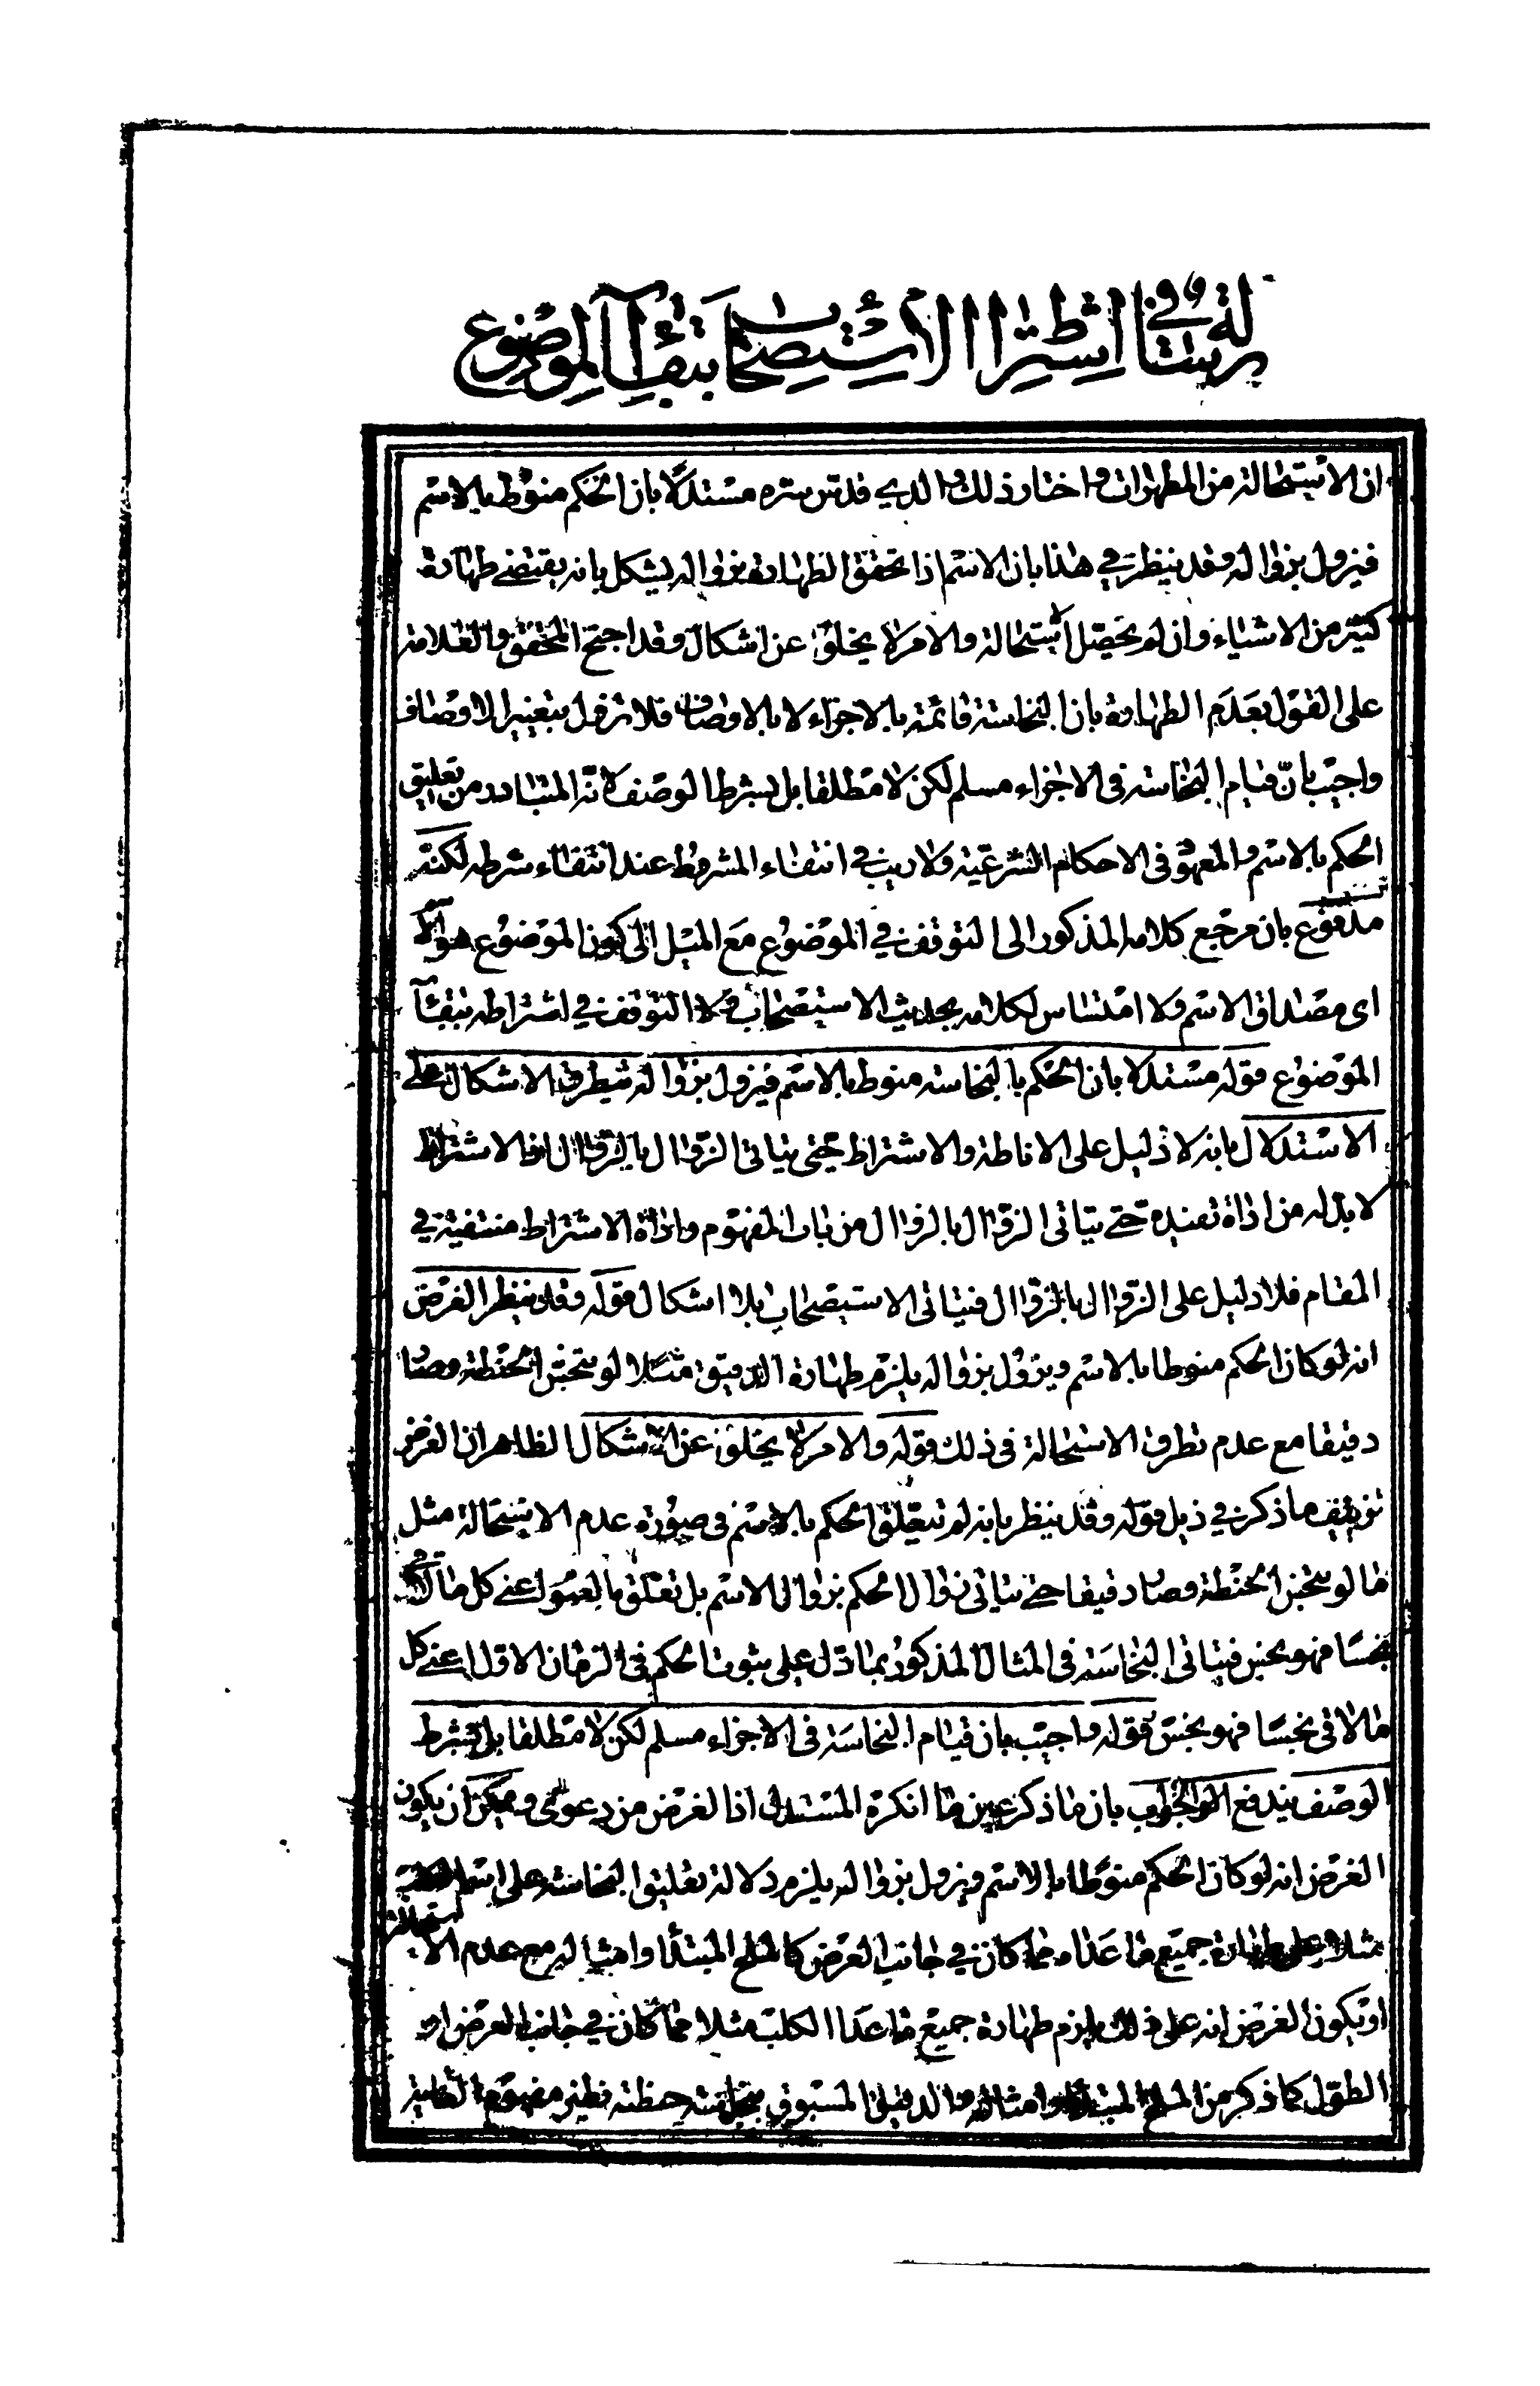 رسالة في اشتراط الاستصحاب ببقاء الموضوع
ان الاستحالة من المطهرات واختار ذلك والدي قدس سره مستدلا بان الحكم منوط بالاسم
فيزول بزواله وقد ينظر في هذا بان الاسم اذا تحقق الطهارة بزواله يشكل بانه يقتضي طهارة
كثير من الاشياء وان لم يحصل الاستحالة والامر لا يخلو عن اشكال وقد احتج المحقق والعلامة
على القول بعدم الطهارة بان النجاسة قائمة بالاجزاء لا بالاوصاف فلا تزول بتغيير الاوصاف
واجيب بانّ قيام النجاسة في الاجزاء مسلم لكن لا مطلقا بل بشرط الوصف لانّه المتبادر من تعليق
الحكم بالاسم والمعهود في الاحكام الشرعيّة ولا ريب في انتفاء المشروط عند انتفاء شرطه لكنه
مدفوع بان مرجع كلامه المذكور الى التوقف في الموضوع مع الميل الى كون الموضوع هو
اى مصداق الاسم ولا امتساس لكلامه بحديث الاستصحاب ولا التوقف في اشتراطه ببقاء
الموضوع قوله مستدلا بان الحكم بالنجاسة منوط بالاسم فيزول بزواله يتطرق الاشكال على
الاستدلال بانه لا دليل على الاناطة والاشتراط حتى يتاتى الزوال بالزوال اذ الاشتراط
لا بد له من اداة تفيده حتى يتاتى الزوال بالزوال من باب المفهوم واداة الاشتراط منتفية في
المقام فلا دليل على الزوال بالزوال فيتاتى الاستصحاب بلا اشكال قوله وقد ينظر الغرض
انه لو كان الحكم منوطا بالاسم ويزول بزواله يلزم طهارة الدقيق مثلا لو تنجس الحنطة وصار
دقيقا مع عدم تطرق الاستحالة في ذلك قوله والامر لا يخلو عن الاشكال الظاهر ان الغرض
تزييف ما ذكر في ذيل قوله وقد ينظر بانه لم يتعلق الحكم بالاسم في صورة عدم الاستحالة مثل
ما لو تنجس الحنطة وصار دقيقا حتى يتاتى زوال الحكم بزوال الاسم بل تعلق بالعموم اعنى كل ما لاقى
نجسا فهو نجس فيتاتى النجاسة في المثال المذكور بما دل على ثبوت الحكم في الزمان الاول اعنى كل
ما لاقى نجسا فهو نجس قوله واجيب بان قيام النجاسة في الاجزاء مسلم لكن لا مطلقا بل بشرط
الوصف يندفع الجواب بان ما ذكر عين ما انكره المستدل اذ الغرض من دعوى ويمكن ان يكون
الغرض انه لو كان الحكم منوطا بالاسم ويزول بزواله يلزم دلالة تعليق النجاسة على اسم الكلب
مثلا على طهارة جميع ما عداه مما كان في جانب العرض كالملح المبتدا وامثاله مع عدم الاستحالة
او يكون الغرض انه على ذلك يلزم طهارة جميع ما عدا الكلب مثلا مما كان في جانب العرض او
الطول كما ذكر من الملح المبتدا وامثاله والدقيق المسبوق بنجاسة حنطته نظير مفهوم الغاية